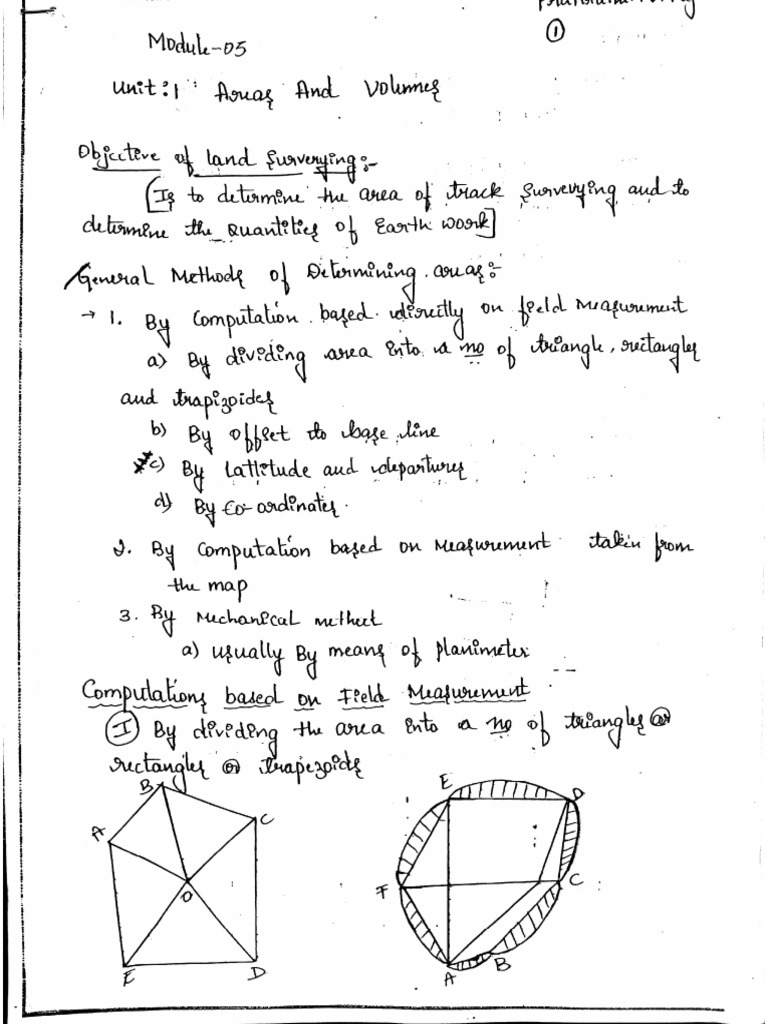 ①
Module-05
Unit:1: Areas And Volumes
Objective of land Surverying:-
[Is to determine the area of track Surveying and to
determine the Quantities of Earth work]
General Methods of Determining areas:-
→ 1. By Computation based directly on field Measurement
a) By dividing area into a no of triangle, rectangles
and trapizoides
b) By offset to base line
c) By Lattitude and departures
d) By Co-ordinates.
2. By Computation based on Measurement taken from
the map
3. By Mechanical method
a) usually By means of planimeter
Computations based on Field Measurement
I By dividing the area into a no of triangles or
rectangles or trapezoids
B
A
C
O
E
D
E
D
F
C
A
B